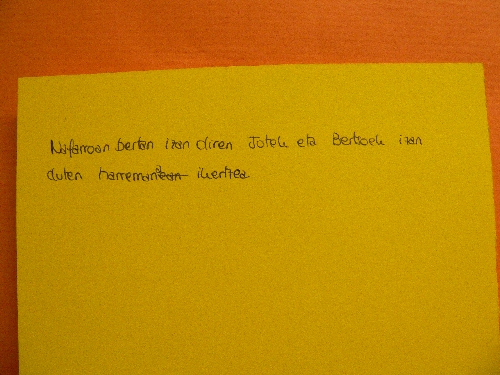 Nafarroan bertan izan diren Jotek eta Bertsoek izan
duten harremana ikertzea